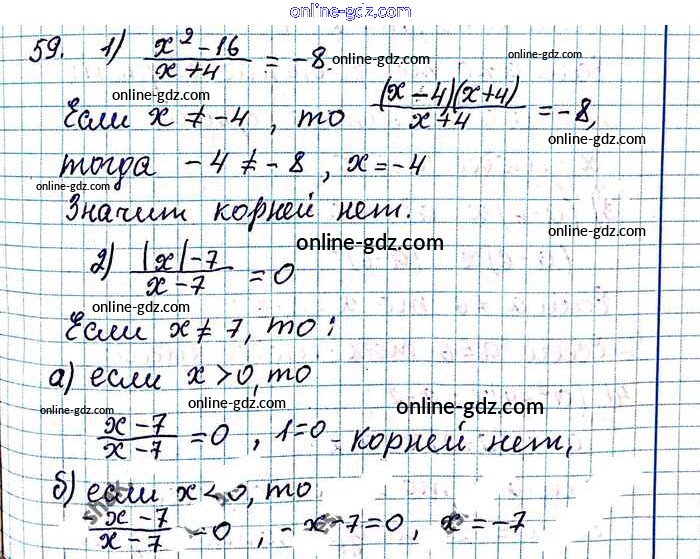 online-gdz.com
59. 1) (x² - 16)/(x + 4) = -8 online-gdz.com
online-gdz.com
Если x ≠ -4, то ((x - 4)(x + 4))/(x + 4) = -8,
online-gdz.com online-gdz.com
тогда -4 ≠ -8, x = -4
online-gdz.com online-gdz.com
Значит корней нет.
online-gdz.com
2) (|x| - 7)/(x - 7) = 0
online-gdz.com online-gdz.com
Если x ≠ 7, то:
online-gdz.com
а) если x > 0, то
online-gdz.com online-gdz.com online-gdz.com
(x - 7)/(x - 7) = 0, 1 = 0 - корней нет,
б) если x < 0, то
(-x - 7)/(x - 7) = 0, -x - 7 = 0, x = -7